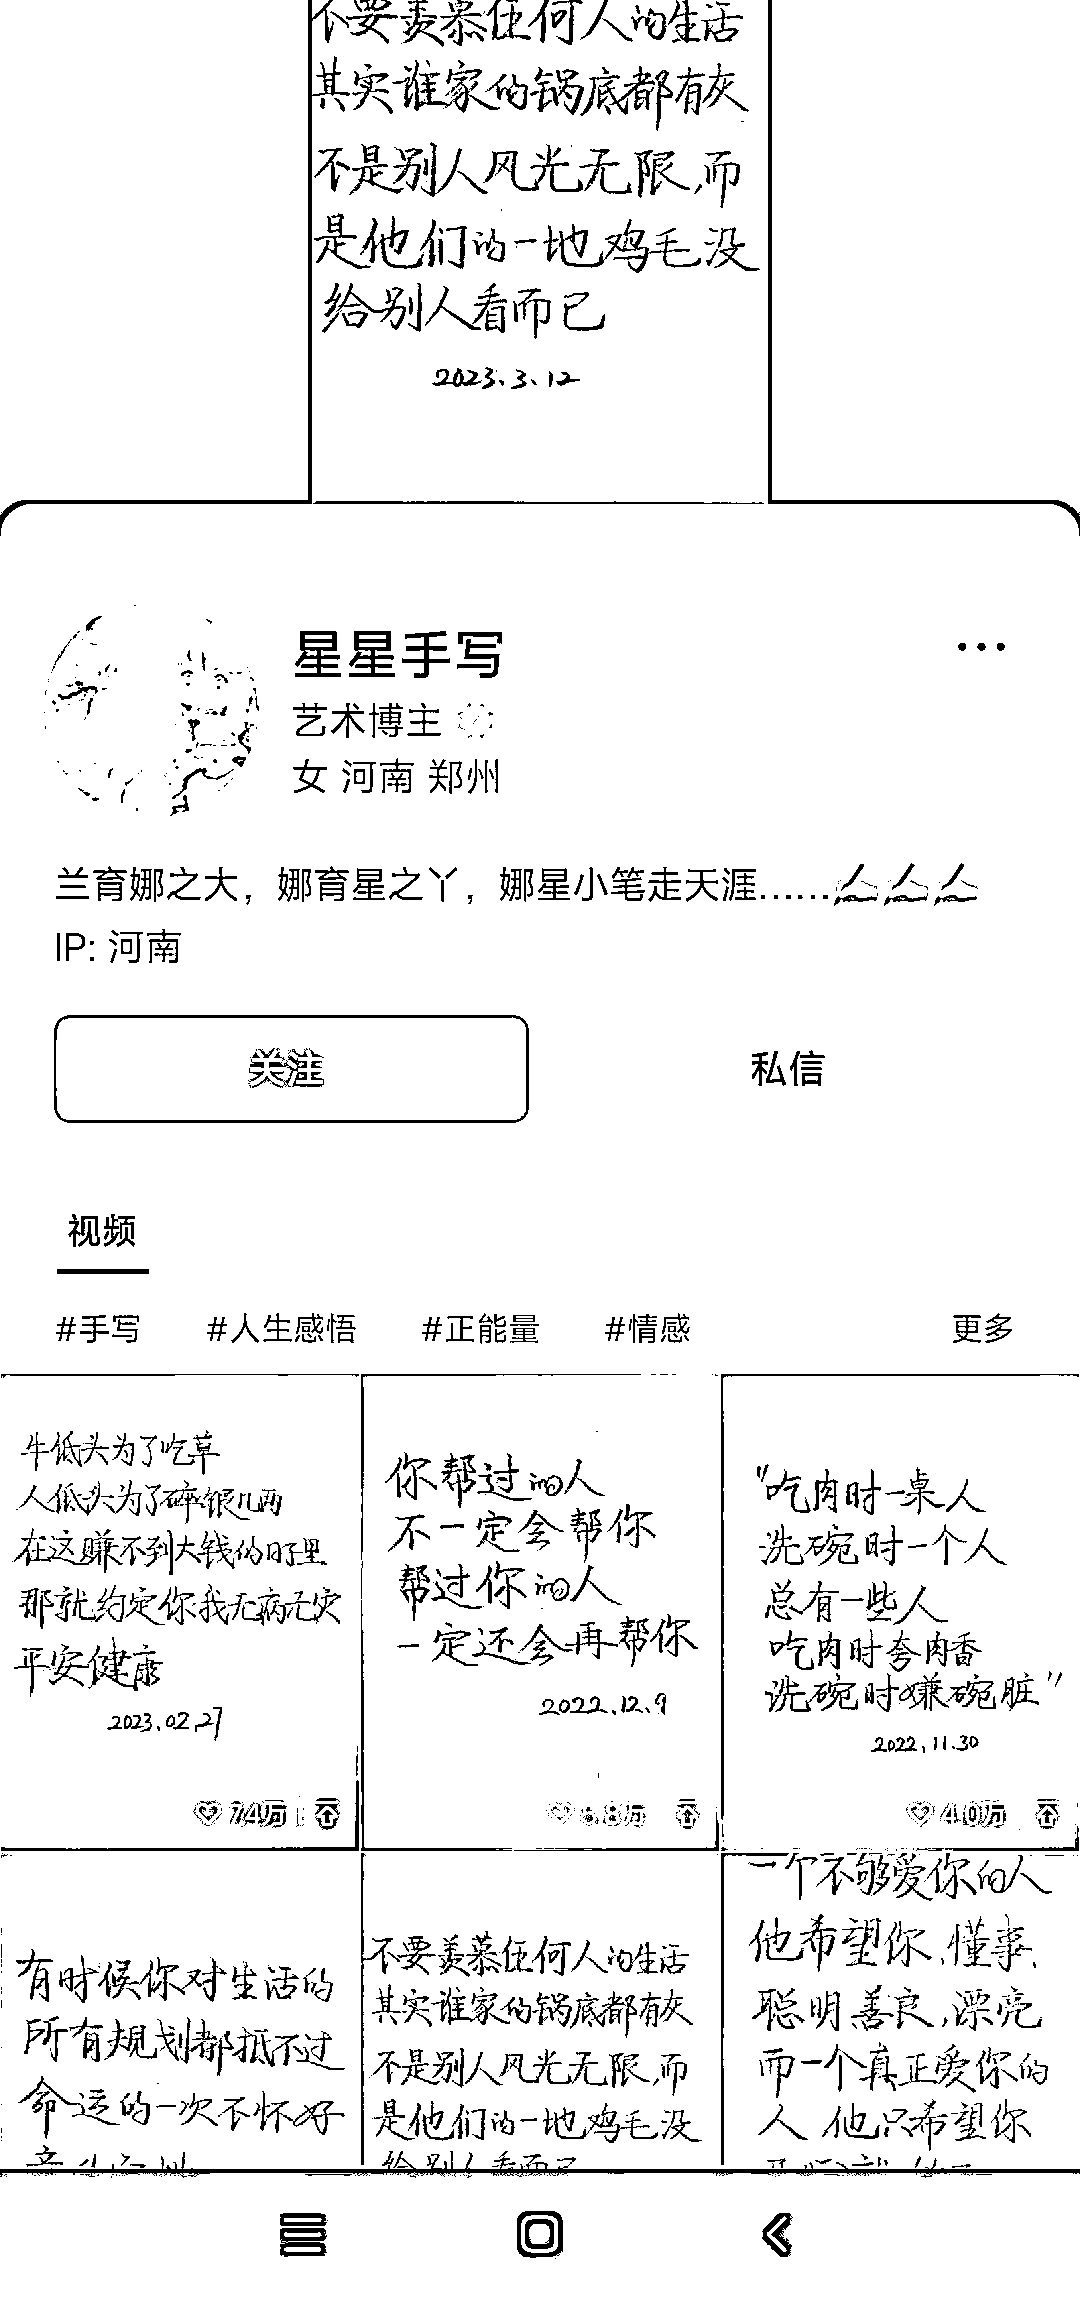 不要羡慕任何人的生活
其实谁家的锅底都有灰
不是别人风光无限,而
是他们的一地鸡毛没
给别人看而已
2023.3.12
星星手写
艺术博主
女 河南 郑州
兰育娜之大，娜育星之丫，娜星小笔走天涯……
IP: 河南
关注
私信
视频
#手写 #人生感悟 #正能量 #情感 更多
牛低头为了吃草
人低头为了碎银几两
在这赚不到大钱的日子里
那就约定你我无病无灾
平安健康
2023.02.27
7.4万
你帮过的人
不一定会帮你
帮过你的人
一定还会再帮你
2022.12.9
"吃肉时一桌人
洗碗时一个人
总有一些人
吃肉时夸肉香
洗碗时嫌碗脏"
2022.11.30
4.0万
有时候你对生活的
所有规划都抵不过
命运的一次不怀好
不要羡慕任何人的生活
其实谁家的锅底都有灰
不是别人风光无限,而
是他们的一地鸡毛没
给别人看而已
一个不够爱你的人
他希望你,懂事,
聪明善良,漂亮
而一个真正爱你的
人 他只希望你